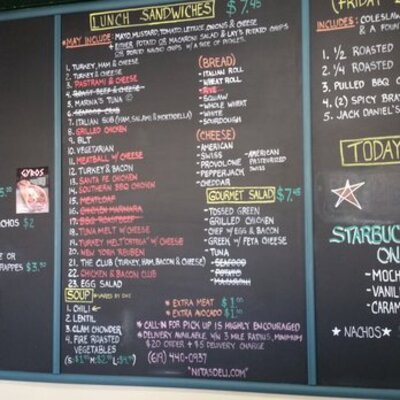 LUNCH SANDWICHES $7.45
*MAY INCLUDE: MAYO, MUSTARD, TOMATO, LETTUCE, ONIONS & CHEESE
+ EITHER POTATO OR MACARONI SALAD & LAY'S POTATO CHIPS
OR POTATO NACHO CHIPS W/ A SIDE OF PICKLES.
1. TURKEY, HAM & CHEESE
2. TURKEY & CHEESE
3. PASTRAMI & CHEESE
4. ROAST BEEF & CHEESE
5. MARINA'S TUNA
6. SEAFOOD CRAB
7. ITALIAN SUB (HAM, SALAMI, & MORTADELLA)
8. GRILLED CHICKEN
9. BLT
10. VEGETARIAN
11. MEATBALL W/ CHEESE
12. TURKEY & BACON
13. SANTA FE CHICKEN
14. SOUTHERN BBQ CHICKEN
15. MEATLOAF
16. CHICKEN MARINARA
17. BBQ ROAST BEEF
18. TUNA MELT W/ CHEESE
19. TURKEY MELT "ORTEGA" W/ CHEESE
20. NEW YORK REUBEN
21. THE CLUB (TURKEY, HAM, BACON & CHEESE)
22. CHICKEN & BACON CLUB
23. EGG SALAD
SOUP *VARIES BY DAY
1. CHILI
2. LENTIL
3. CLAM CHOWDER
4. FIRE ROASTED
VEGETABLES
(BREAD)
- ITALIAN ROLL
- WHEAT ROLL
- RYE
- SQUAW
- WHOLE WHEAT
- WHITE
- SOURDOUGH
(CHEESE)
- AMERICAN
- SWISS
- PROVOLONE
- PEPPERJACK
- CHEDDAR
- AMERICAN
PASTEURIZED
SWISS
GOURMET SALAD $7.45
- TOSSED GREEN
- GRILLED CHICKEN
- CHEF W/ EGG & BACON
- GREEK W/ FETA CHEESE
- TUNA
- SEAFOOD
- POTATO
- MACARONI
* EXTRA MEAT $1.00
* EXTRA AVOCADO $1.00
* CALL-N FOR PICK UP IS HIGHLY ENCOURAGED
* DELIVERY AVAILABLE W/N 3 MILE RADIUS, MINIMUM
$20 ORDER + $5 DELIVERY CHARGE
(619) 440-0937
"NIITASDELI.COM"
GYROS
NACHOS $2
OR
FRAPPES $3.50
(FRIDAY
INCLUDES: COLESLAW
& A
1. ½ ROASTED
2. ¼ ROASTED
3. PULLED BBQ
4. (2) SPICY BRAT
5. JACK DANIEL'S
TODAY
STARBUC
ON
- MOCH
- VANIL
- CARAM
*NACHOS* $